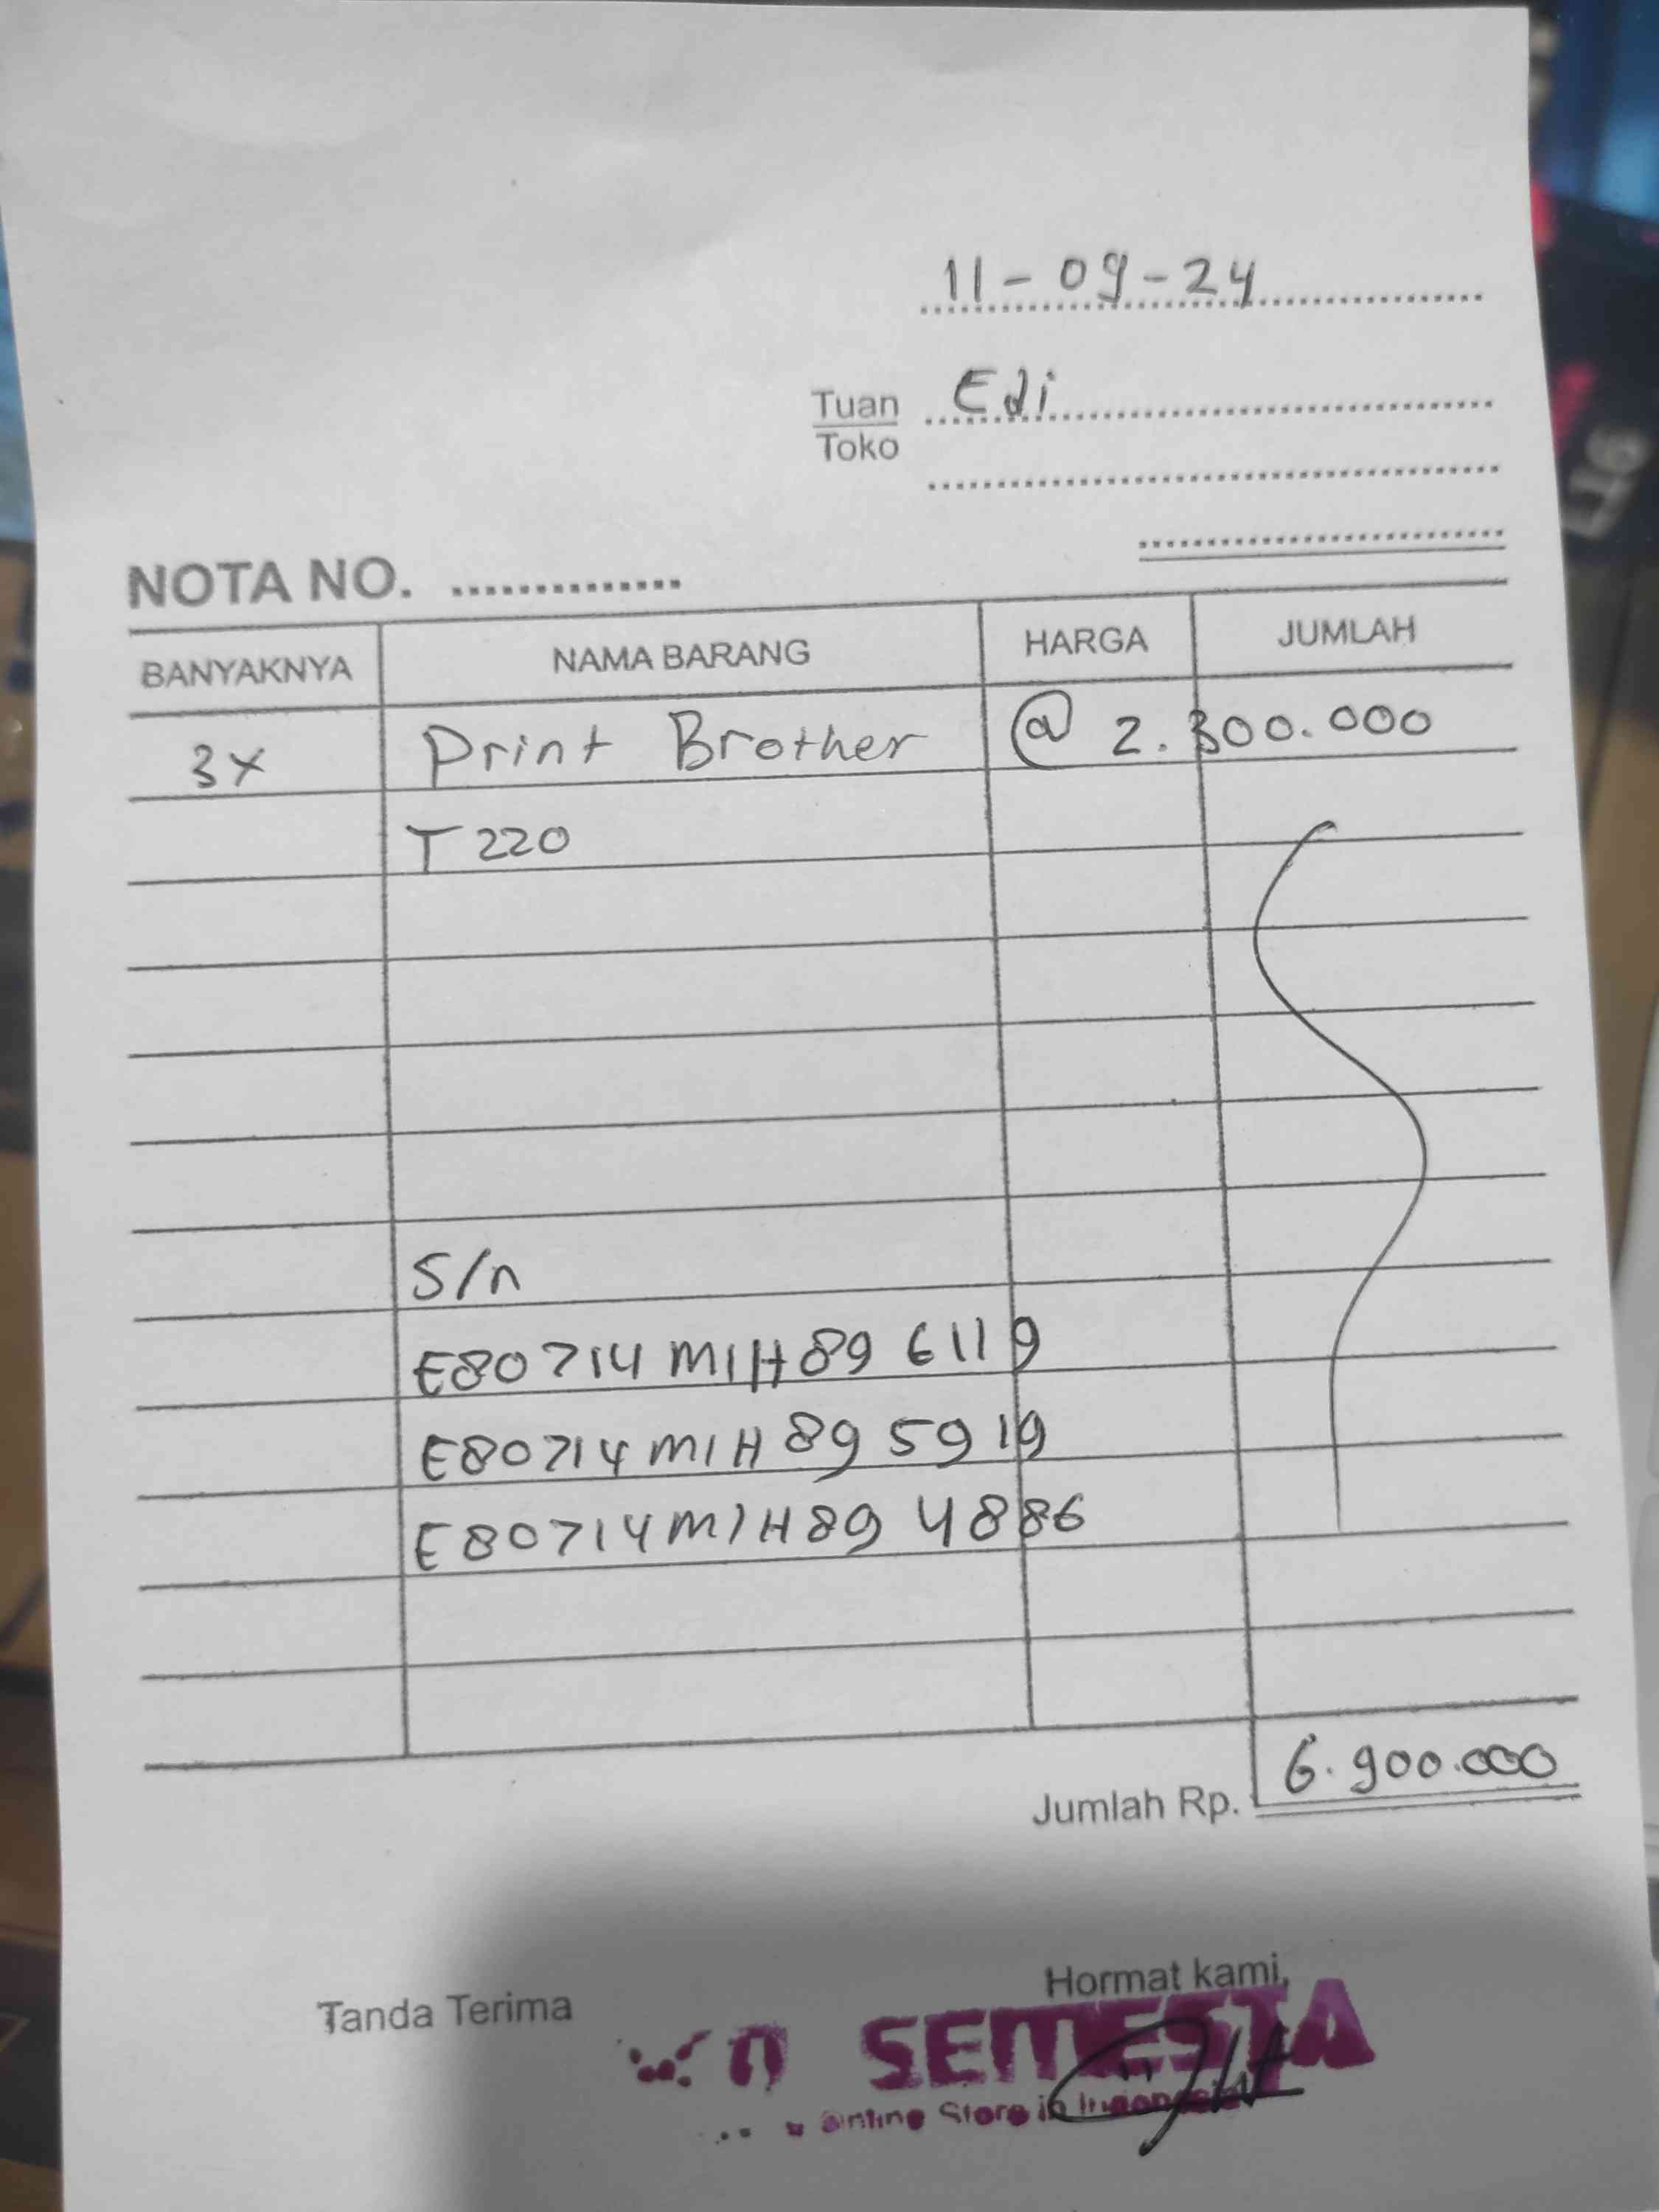 11-09-24
Tuan Edi
Toko
NOTA NO.
BANYAKNYA NAMA BARANG HARGA JUMLAH
3x Print Brother @ 2.300.000
T220
S/n
E80714M1H896119
E80714M1H895919
E80714M1H894886
Jumlah Rp. 6.900.000
Tanda Terima Hormat kami,
SEMESTA
Online Store in Indonesia